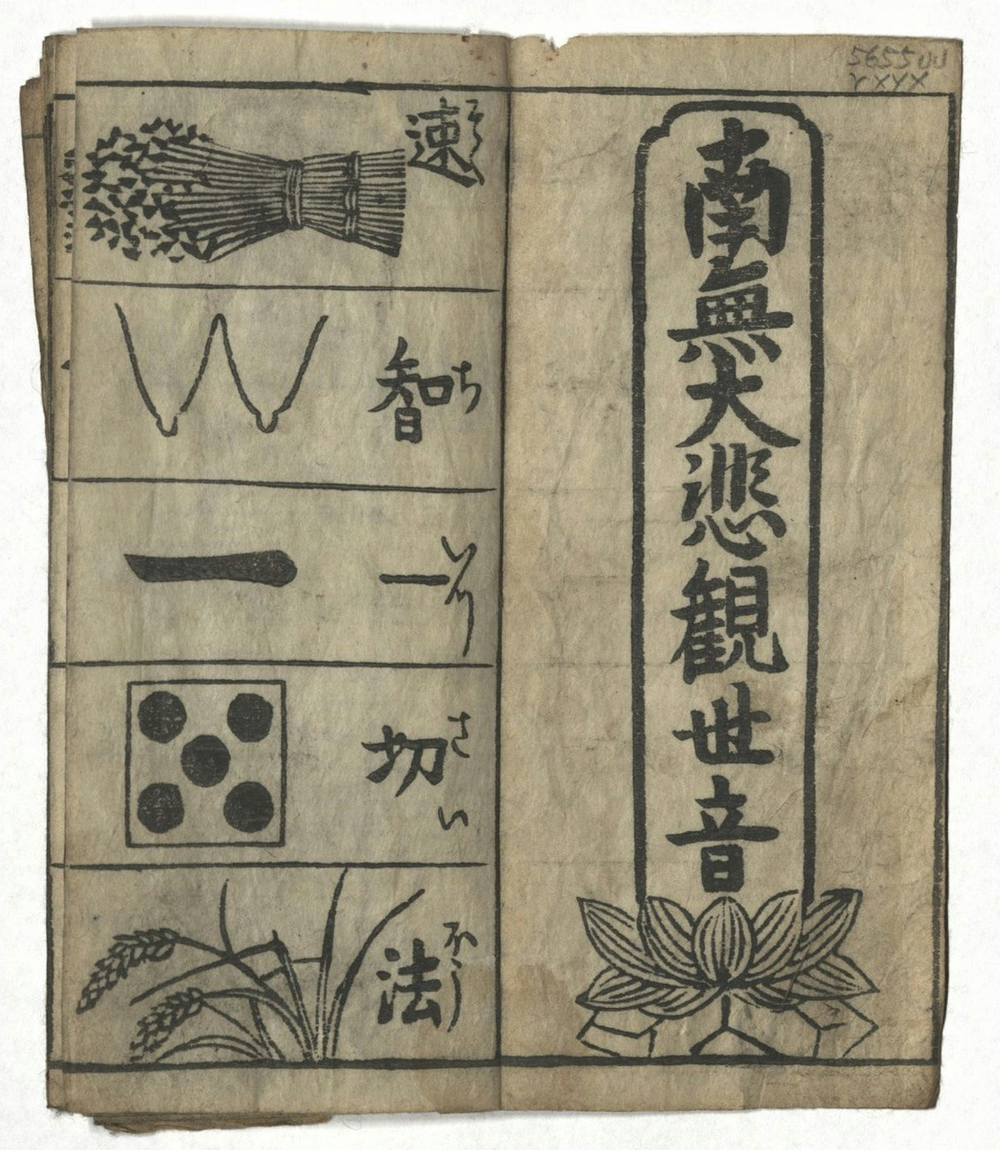 南無大悲観世音
速そく
智ち
一いつ
一
切さい
法ほう